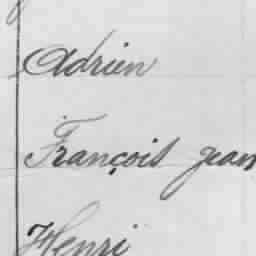 Adrien
François jean
Henri